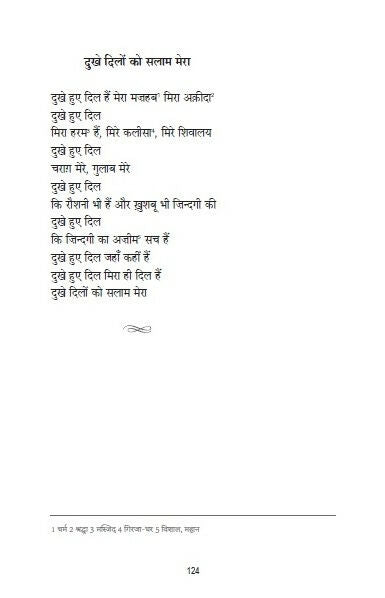 दुखे दिलों को सलाम मेरा
दुखे हुए दिल हैं मेरा मज़हब¹ मिरा अक़ीदा²
दुखे हुए दिल
मिरा हरम³ हैं, मिरे कलीसा⁴, मिरे शिवालय
दुखे हुए दिल
चराग़ मेरे, गुलाब मेरे
दुखे हुए दिल
कि रौशनी भी हैं और ख़ुशबू भी ज़िन्दगी की
दुखे हुए दिल
कि ज़िन्दगी का अज़ीम⁵ सच हैं
दुखे हुए दिल जहाँ कहीं हैं
दुखे हुए दिल मिरा ही दिल हैं
दुखे दिलों को सलाम मेरा
1 धर्म 2 श्रद्धा 3 मस्जिद 4 गिरजा-घर 5 विशाल, महान
124